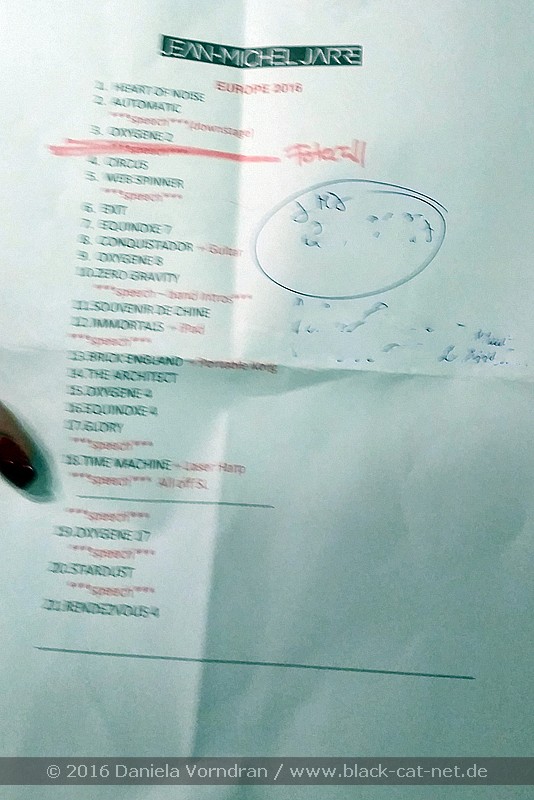 JEAN-MICHEL JARRE
EUROPE 2016
1. HEART OF NOISE
2. AUTOMATIC
***speech***(downstage)
3. OXYGENE 2
***speech***
4. CIRCUS
5. WEB SPINNER
***speech***
6. EXIT
7. EQUINOXE 7
8. CONQUISTADOR – Guitar
9. OXYGENE 8
10. ZERO GRAVITY
***speech – band intros***
11. SOUVENIR DE CHINE
12. IMMORTALS – iPad
***speech***
13. BRICK ENGLAND – Portable Korg
14. THE ARCHITECT
15. OXYGENE 4
16. EQUINOXE 4
17. GLORY
***speech***
18. TIME MACHINE – Laser Harp
***speech***
19. OXYGENE 17
***speech***
20. STARDUST
***speech***
21. RENDEZVOUS 4
© 2016 Daniela Vorndran / www.black-cat-net.de